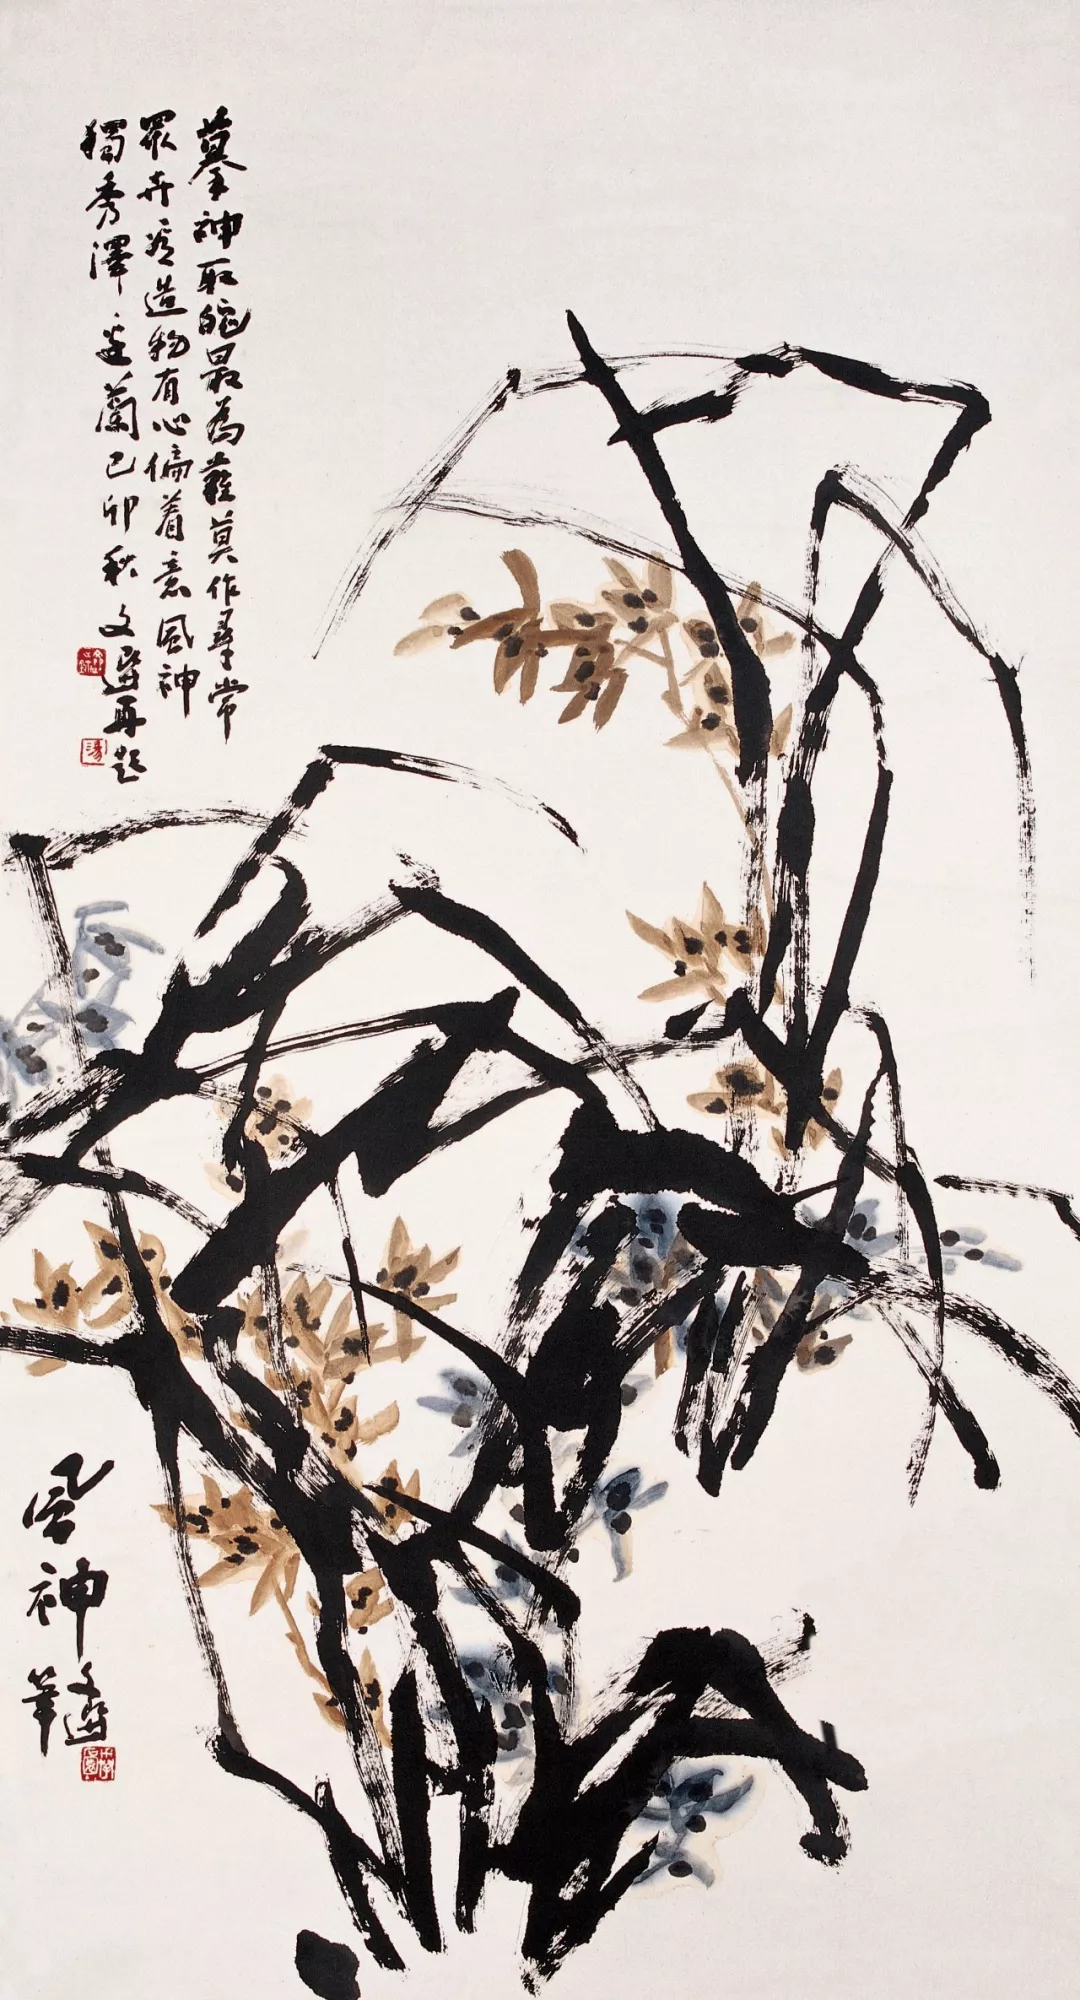 摹神取皃最為難莫作尋常
眾卉看造物有心偏着意風神
獨秀澤邊蘭己卯秋文選再題
風神
文選
筆